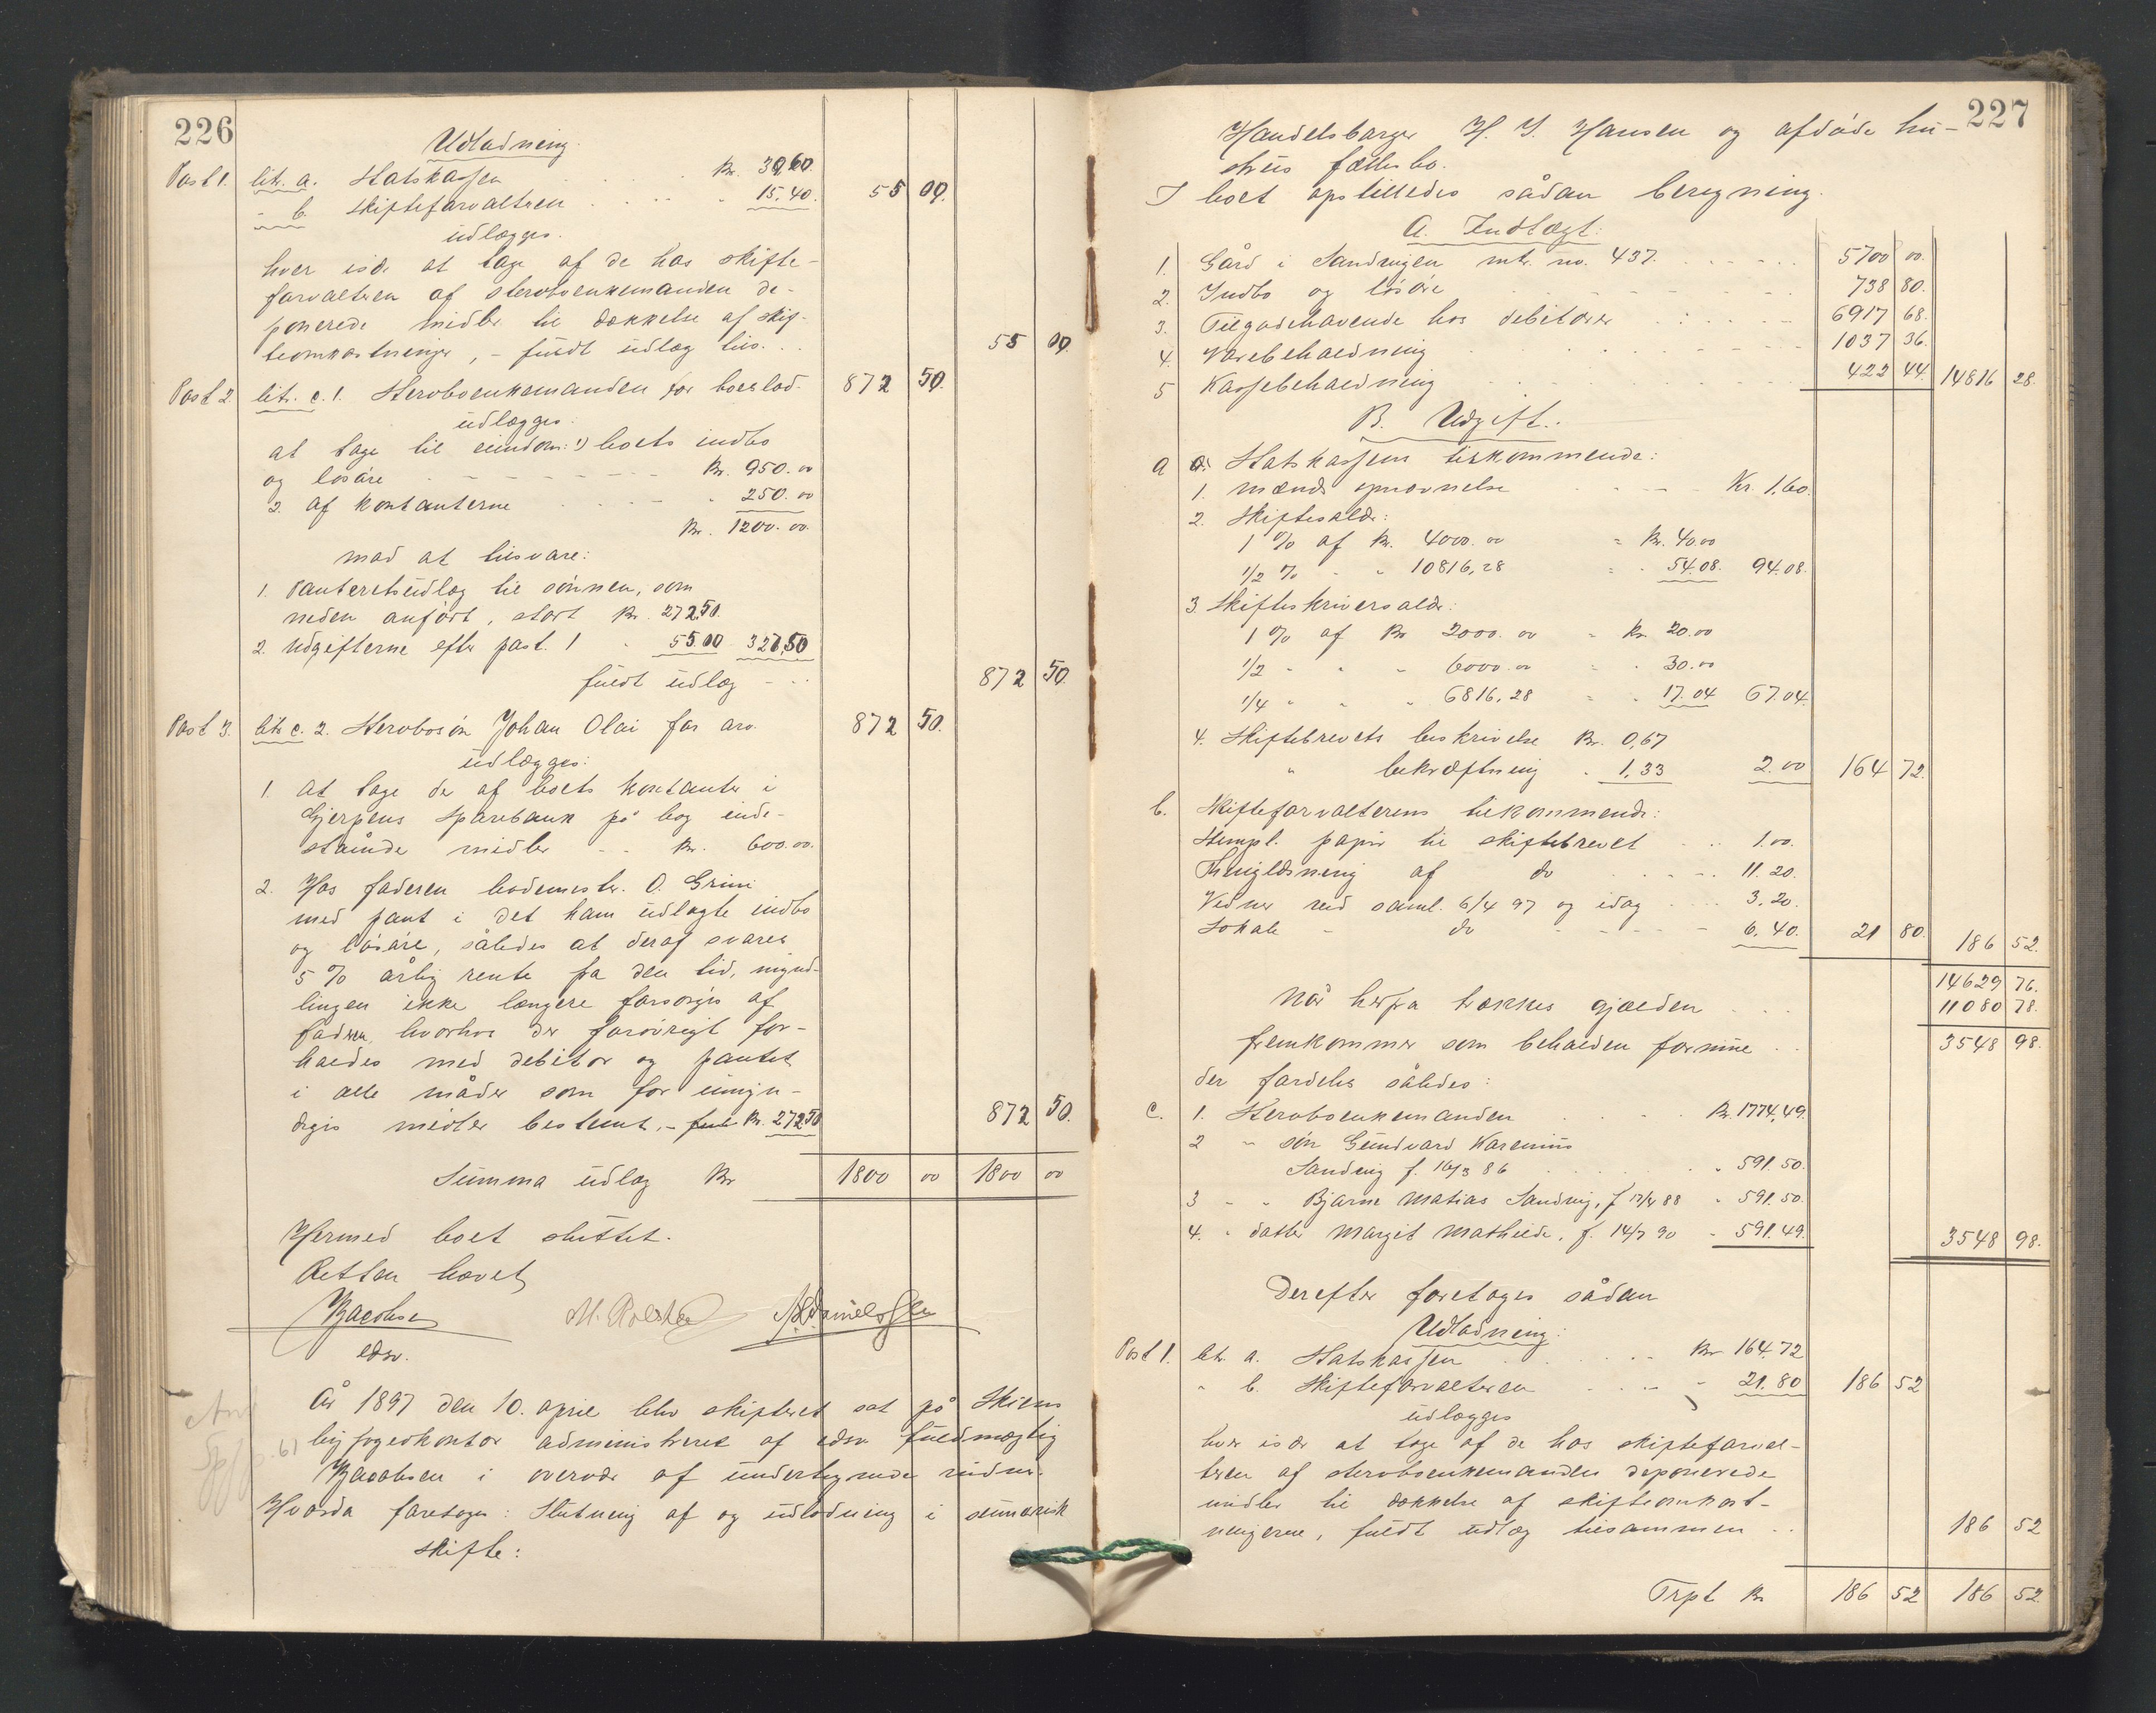 226
Udlodning.
Post 1. litr. a. Statskassen . . . . . Kr. 39.60.
" b. Skifteforvalteren . . . . " 15.40. 55 00.
udlægges.
hver især at tage af de hos skifte-
forvalteren af sterboenkemanden de-
ponerede midler til dækkelse af skif-
teomkostninger, – fuldt udlæg tils. . . 55 00.
Post 2. litr. c. 1. Sterboenkemanden for boeslod. 872 50.
udlægges:
at tage til eiendom: 1) boets indbo
og løsøre - - - - - - Kr. 950.00
2. af kontanterne . . . - " 250.00
Kr. 1200.00.
mod at tilsvare:
1. Panteretsudlæg til sønnen, som
neden anført, stort Kr. 272.50.
2. Udgifterne efter post. 1 " 55.00 327,50
fuldt udlæg - . . 872 50.
Post 3. litr. c. 2. Sterbosøn Johan Olai for arv. 872 50.
udlægges:
1. at tage de af boets kontanter i
Gjerpens Sparebank på bog inde-
stående midler - - Kr. 600.00.
2. Hos faderen bademester O. Grini
med pant i det ham udlagte indbo
og løsøre, således at deraf svares
5 % årlig rente fra den tid, mynd-
lingen ikke længere forsørges af
faderen, hvorhos der forøvrigt for-
holdes med debitor og pantet
i alle måder som for umyn-
diges midler bestemt, – Kr. 272.50 872 50.
Summa udlæg Kr 1800 00 1800 00
Hermed boet sluttet.
Retten hævet
Jacobsen
edsv.
År 1897 den 10. april blev skifteret sat på Skiens
byfogedkontor administreret af edsv. fuldmægtig
Jacobsen i overvær af undertegnede vidner.
Hvorda foretoges: Slutning af og udlodning i summarisk
skifte:
227
Handelsborger H. J. Hansen og afdøde hu-
strus fællesbo.
I boet opstilledes sådan beregning.
A. Indtægt:
1. Gård i Sandvigen mtr. no. 437. - - - - - 5700 00.
2. Indbo og løsøre - - - - - - - 738 80.
3. Tilgodehavende hos debitorer . : . - - - 6917 68.
4. Varebeholdning . . . . . - - - - 1037 36.
5 Kassebeholdning . . . . . . 422 44. 14816 28.
B. Udgift.
a Statskassen tilkommende:
1. mænds opnævnelse - - - - Kr. 1,60.
2. Skiftesaldr:
1 % af Kr. 4000.00 = Kr. 40.00
1/2 % - " 10816,28 = " 54.08. 94.08.
3. Skifteskriversaldr:
1 % af Kr 2000.00 = Kr. 20.00
1/2 " " " 6000.00 = " 30.00
1/4 " " " 6816,28 = " 17.04 67.04.
4. Skiftebrevets beskrivelse Kr. 0,67
" bekræftning " 1,33 2.00 164 72.
b. Skifteforvalteren tilkommende:
Stempl. papir til skiftebrevet - . . 1.00.
Thinglæsning af do . . . - . 11.20.
Vidner ved saml. 6/4 97 og idag . . . . 3.20.
Lokale - do - - - - - 6.40. 21 80. 186 52.
14629 76.
Når herfra trækkes gjælden . . . 11080 78.
fremkommer som beholden formue . . 3548 98.
der fordeles således:
c. 1. Sterboenkemanden . . . . . Kr. 1774,49.
2 " søn Gundvard Karenius
Sandvig f. 16/3 86 . . . . . . " 591.50.
3 " " Bjarne Matias Sandvig, f 12/4 88 " 591.50.
4. " datter Margit Mathilde, f. 14/7 90 " 591.49. 3548 98.
Derefter foretoges sådan
Udlodning:
Post 1. litr. a. Statskassen . . . . . . Kr 164.72
" b. Skifteforvalteren . . . . - 21.80 186 52
udlægges
hver især at tage af de hos skifteforval-
teren af sterboenkemanden deponerede
midler til dækkelse af skifteomkost-
ningerne, fuldt udlæg tilsammen . . 186 52
Trpt Kr 186 52 186 52.